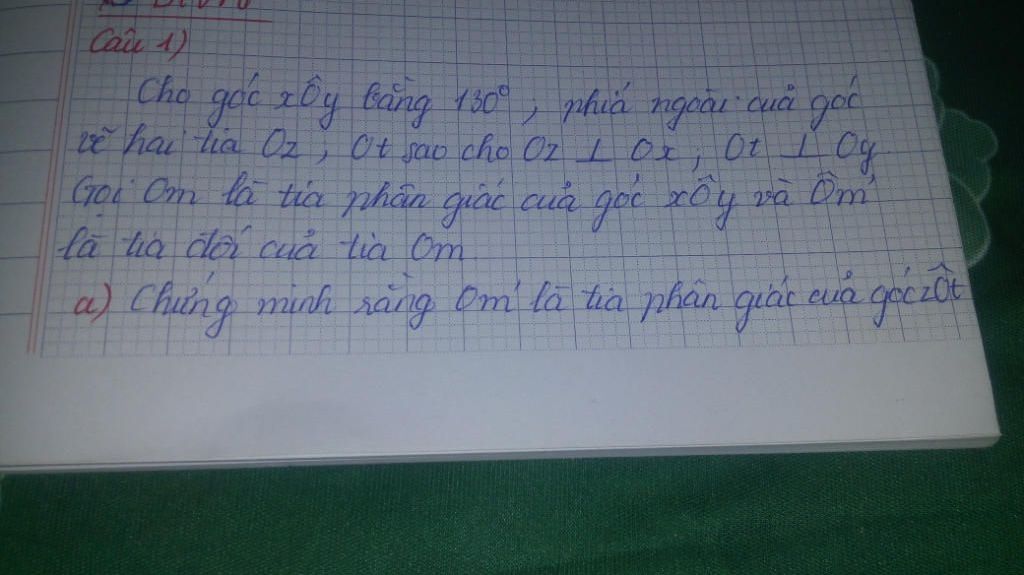 Câu 1)
Cho góc xÔy bằng 130°, phiá ngoài cuả góc
vẽ hai tia Oz, Ot sao cho Oz ⊥ Ox, Ot ⊥ Oy
Gọi Om là tia phân giác cuả góc xÔy và Om'
là tia đối cuả tia Om
a) Chứng minh rằng Om' là tia phân giác cuả góc zÔt